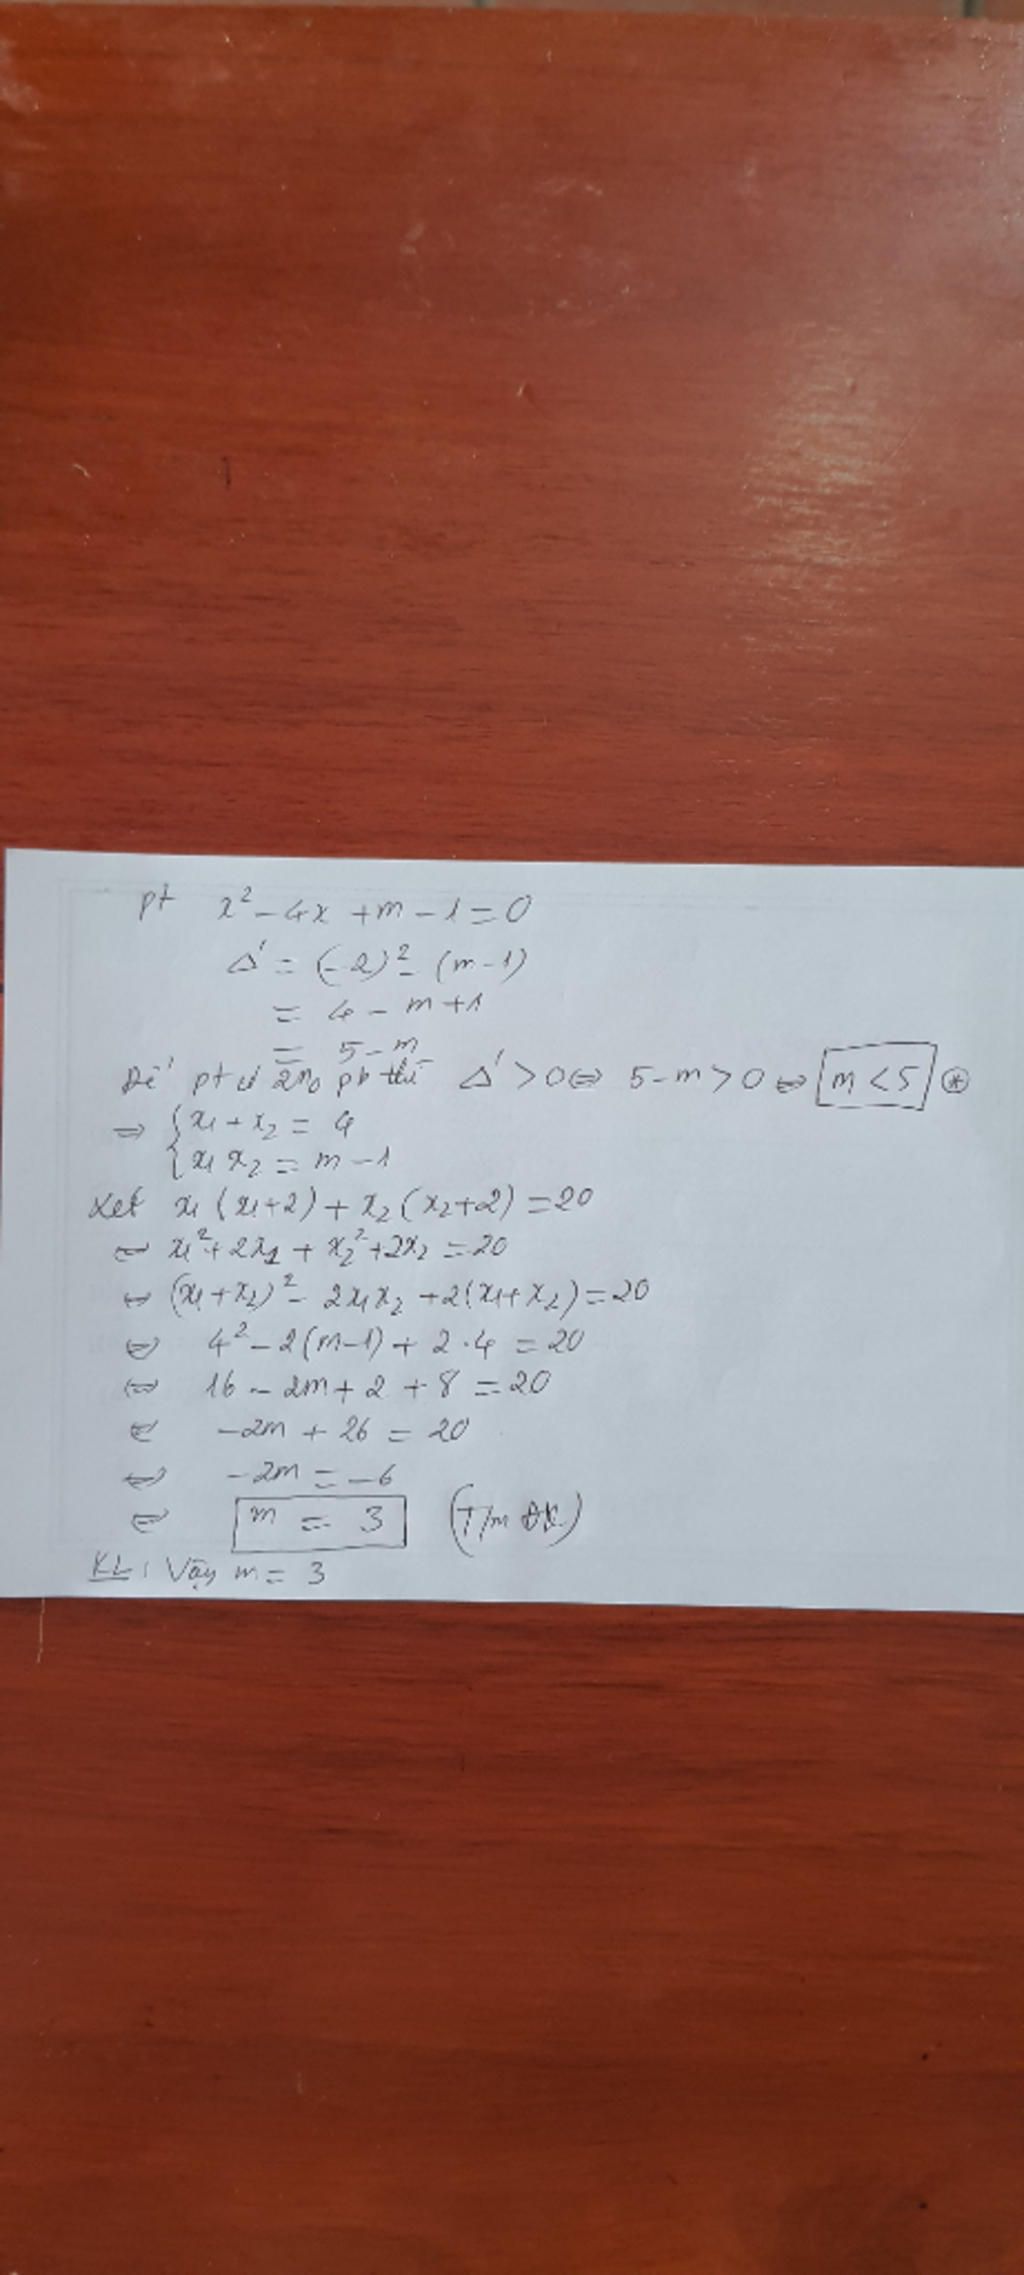 pt x² - 4x + m - 1 = 0
Δ' = (-2)² - (m-1)
= 4 - m + 1
= 5 - m
Để pt có 2n₀ pb thì Δ' > 0 ⇔ 5 - m > 0 ⇔ m < 5 (*)
⇒ { x₁ + x₂ = 4
{ x₁ x₂ = m - 1
Xét x₁ (x₁+2) + x₂ (x₂+2) = 20
⇔ x₁² + 2x₁ + x₂² + 2x₂ = 20
⇔ (x₁ + x₂)² - 2x₁x₂ + 2(x₁ + x₂) = 20
⇔ 4² - 2(m-1) + 2.4 = 20
⇔ 16 - 2m + 2 + 8 = 20
⇔ -2m + 26 = 20
⇔ -2m = -6
⇔ m = 3 (T/m ĐK)
KL: Vậy m = 3